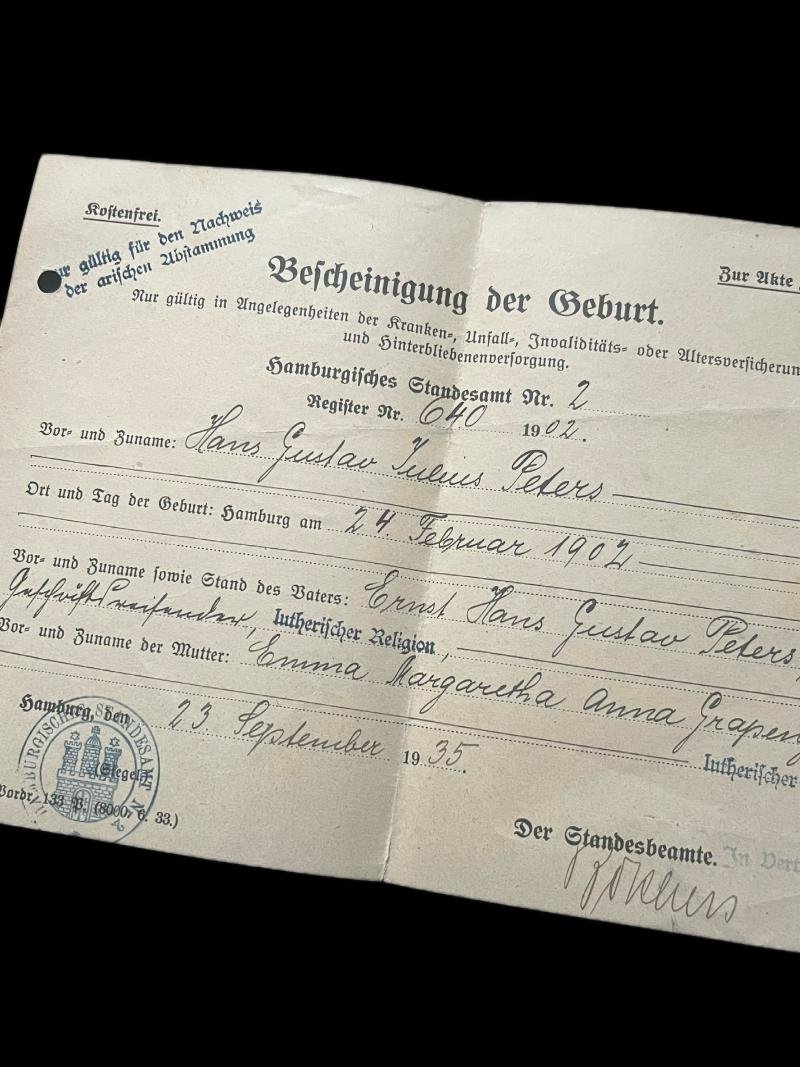 Kostenfrei.
ur gültig für den Nachweis
der arischen Abstammung
Zur Akte
Bescheinigung der Geburt.
Nur gültig in Angelegenheiten der Kranken-, Unfall-, Invaliditäts- oder Altersversicherun
und Hinterbliebenenversorgung.
Hamburgisches Standesamt Nr. 2
Register Nr. 640 1902.
Vor- und Zuname: Hans Gustav Julius Peters
Ort und Tag der Geburt: Hamburg am 24. Februar 1902
Vor- und Zuname sowie Stand des Vaters: Ernst Hans Gustav Peters,
Geschäftsreisender, lutherischer Religion,
Vor- und Zuname der Mutter: Emma Margaretha Anna Grapeng
lutherischer
Hamburg, den 23 September 1935.
(Siegel.)
HAMBURGISCHES STANDESAMT
Vordr. 133 P. (8000. 6. 33.)
Der Standesbeamte.
In Vert